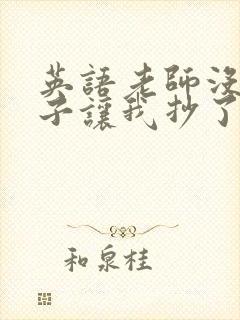 英語老師沒
子讓我抄了
和泉桂